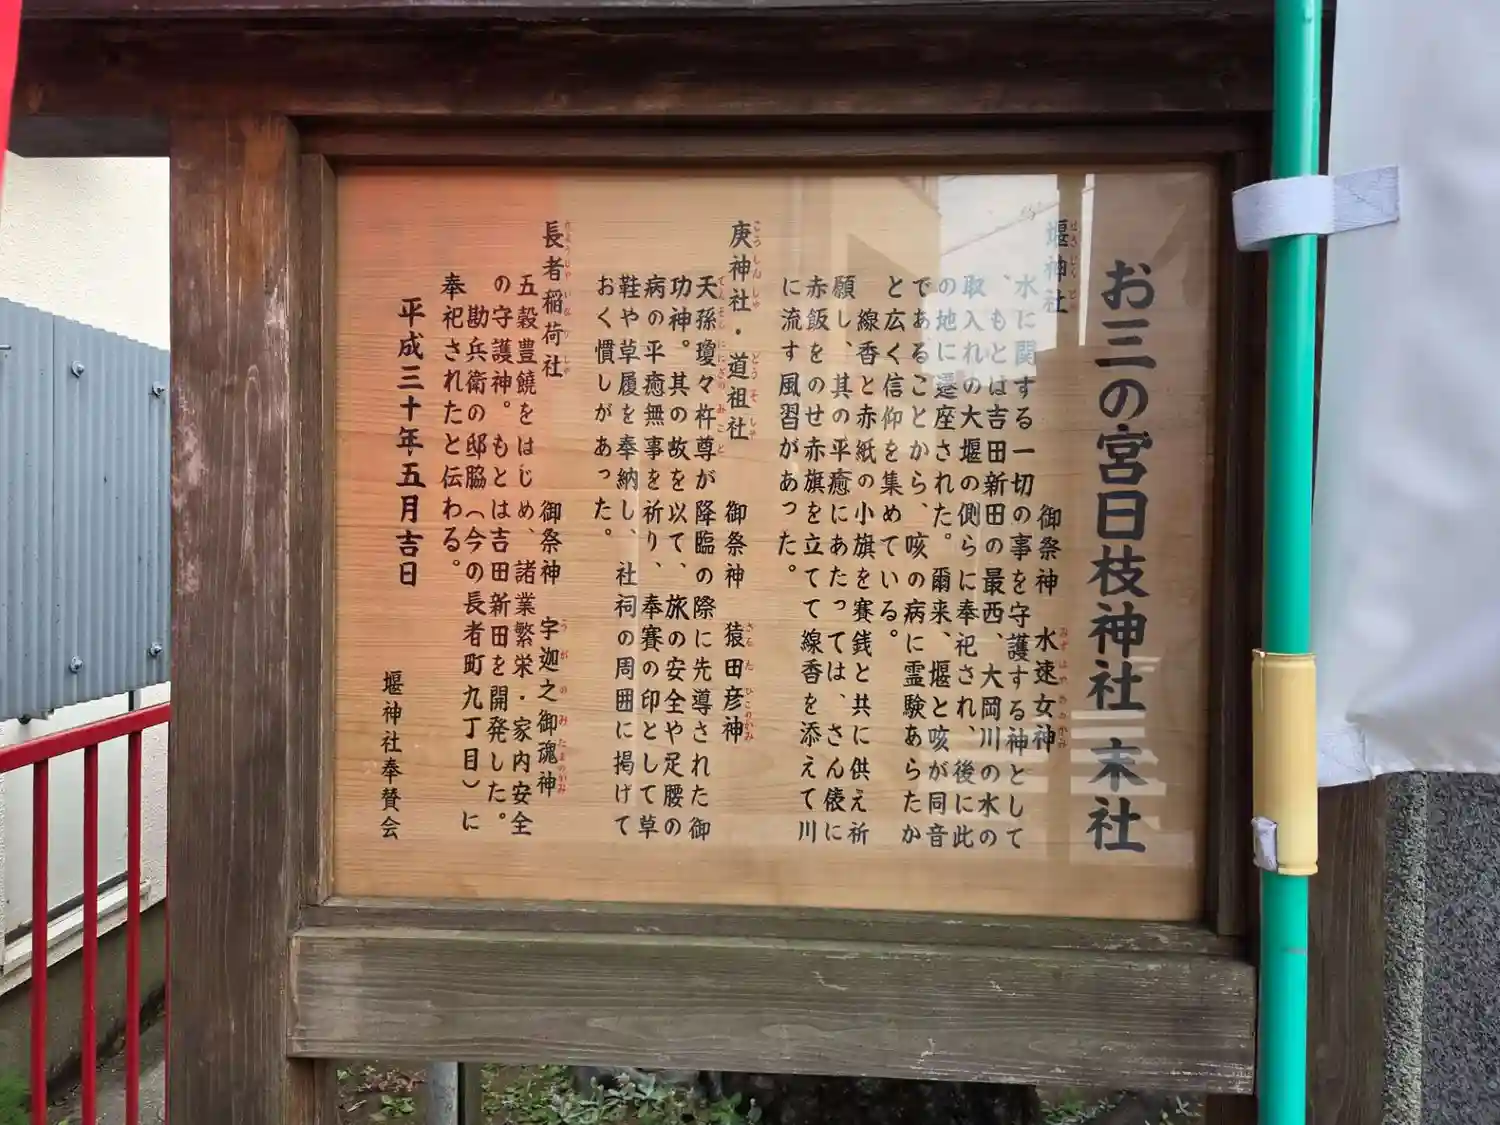 お三の宮日枝神社 末社
堰神社 御祭神 水速女神
水に関する一切の事を守護する神として
、もとは吉田新田の最西、大岡川の水の
取入れの大堰の側らに奉祀され、後に此
の地に遷座された。爾来、堰と咳が同音
であることから、咳の病に霊験あらたか
と広く信仰を集めている。
線香と赤紙の小旗を賽銭と共に供え祈
願し、其の平癒にあたっては、さん俵に
赤飯をのせ赤旗を立てて線香を添えて川
に流す風習があった。
庚神社・道祖社 御祭神 猿田彦神
天孫瓊々杵尊が降臨の際に先導された御
功神。其の故を以て、旅の安全や足腰の
病の平癒無事を祈り、奉賽の印として草
鞋や草履を奉納し、社祠の周囲に掲げて
おく慣しがあった。
長者稲荷社 御祭神 宇迦之御魂神
五穀豊饒をはじめ、諸業繁栄・家内安全
の守護神。もとは吉田新田を開発した。
勘兵衛の邸脇(今の長者町九丁目)に
奉祀されたと伝わる。
平成三十年五月吉日
堰神社奉賛会